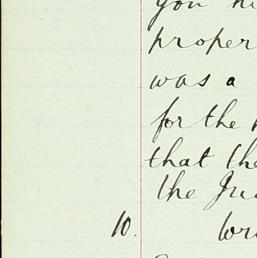 you
proper
was a
for the
that the
the Jud
10.